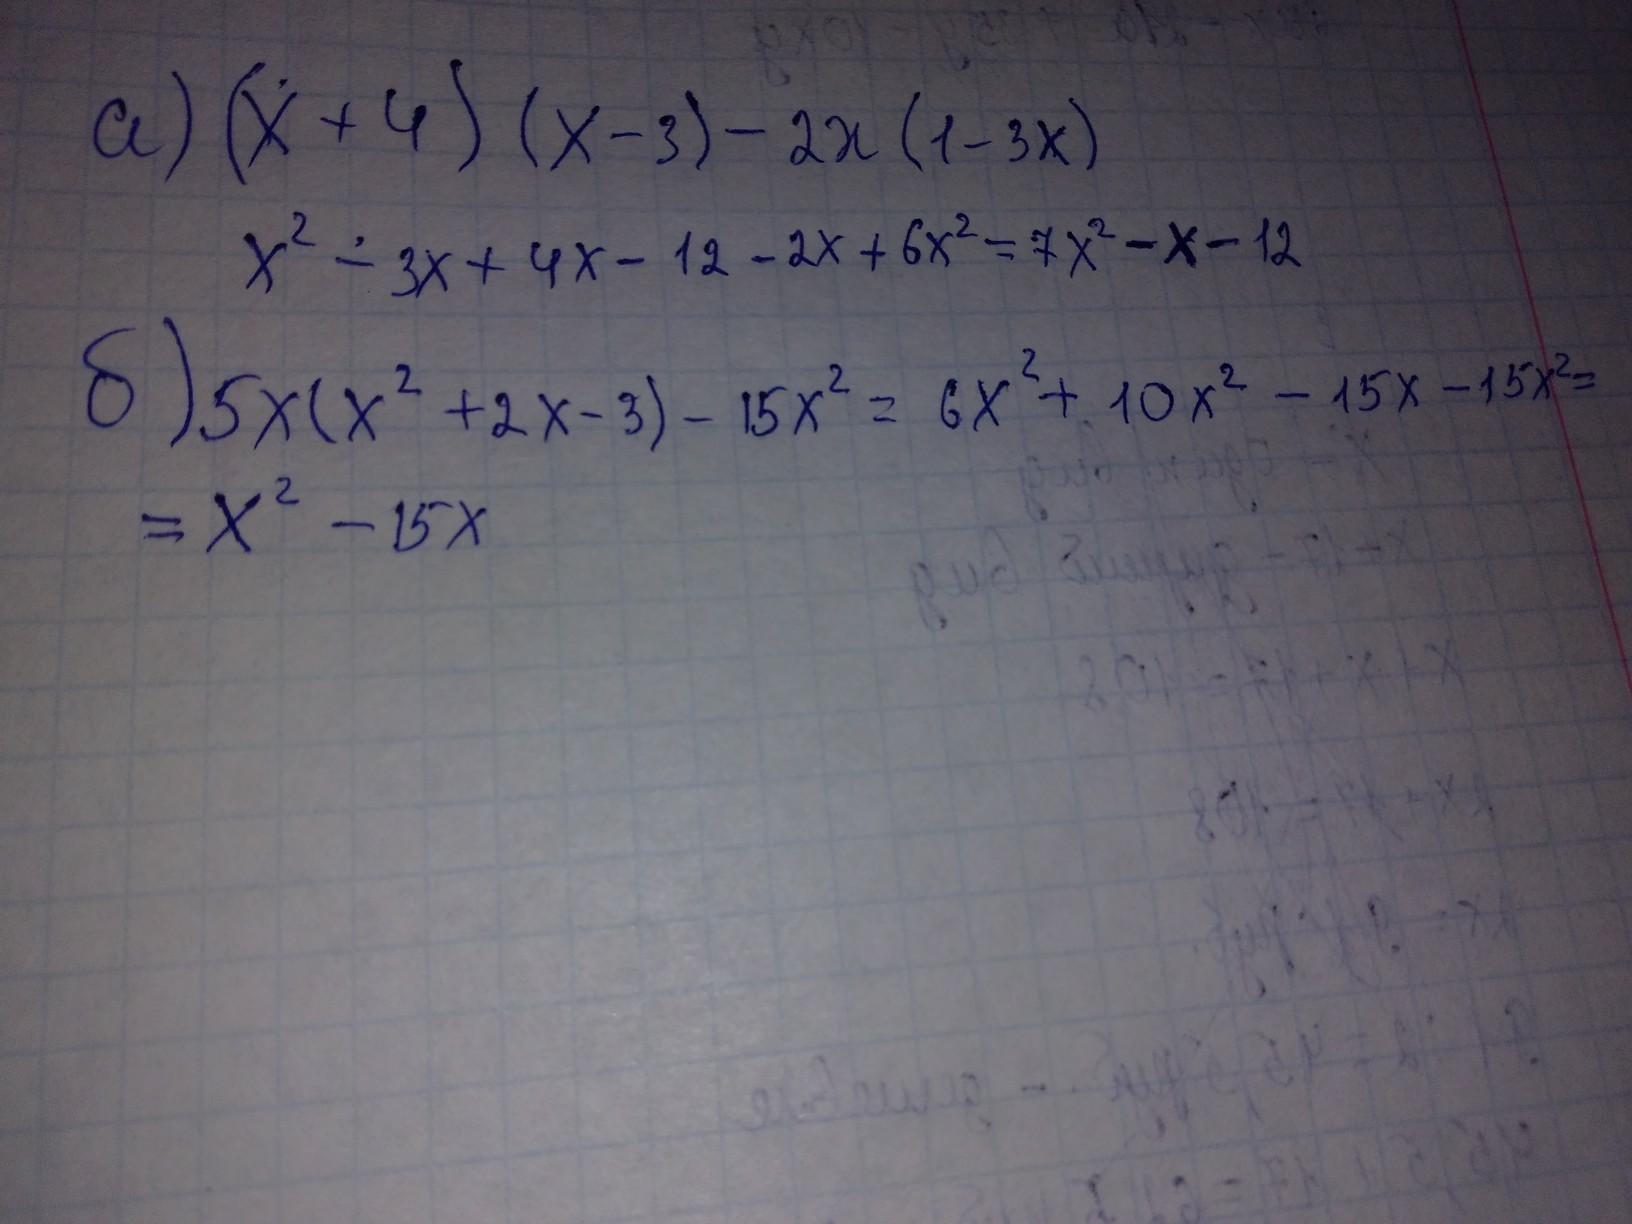 а) (x + 4) (x - 3) - 2x (1 - 3x)
x² - 3x + 4x - 12 - 2x + 6x² = 7x² - x - 12
б) 5x(x² + 2x - 3) - 15x² = 6x² + 10x² - 15x - 15x² =
= x² - 15x